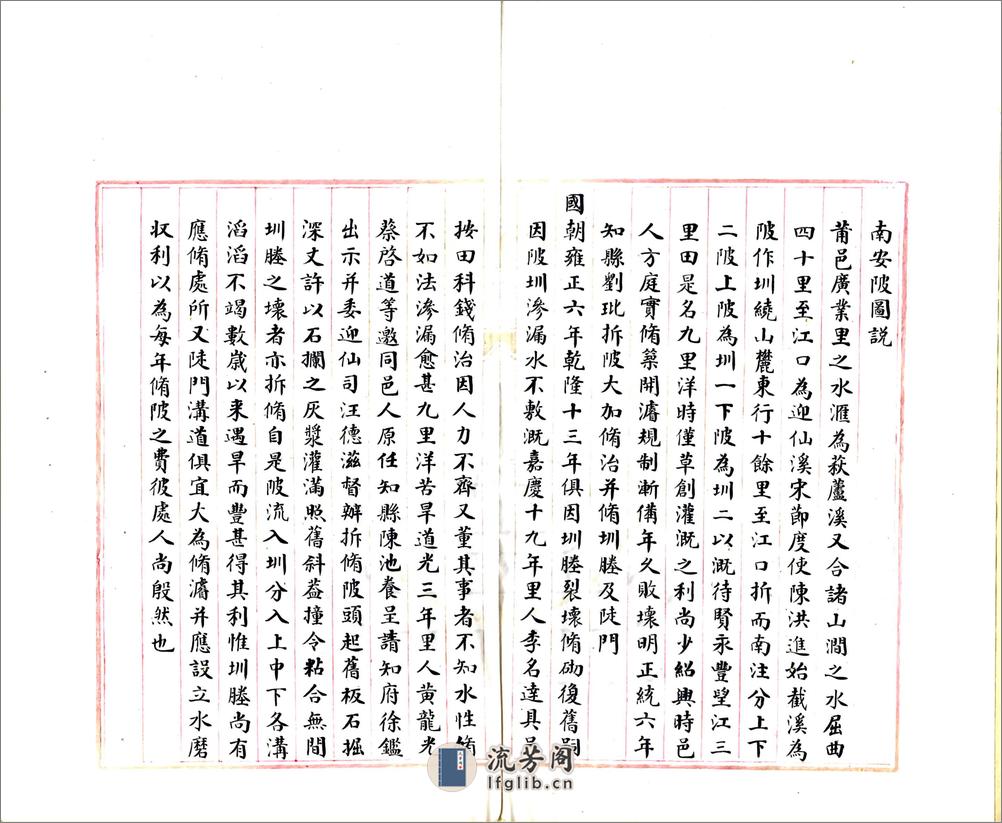 南安陂圖説
莆邑廣業里之水滙為萩蘆溪又合諸山澗之水屈曲
四十里至江口為迎仙溪宋節度使陳洪進始截溪為
陂作圳繞山麓東行十餘里至江口折而南注分上下
二陂上陂為圳一下陂為圳二以溉待賢永豐望江三
里田是名九里洋時僅草創灌溉之利尚少紹興時邑
人方庭實脩築開濬規制漸備年久敗壞明正統六年
知縣劉玭拆陂大加脩治并脩圳塍及陡門
國朝雍正六年乾隆十三年俱因圳塍裂壞脩砌復舊嗣
因陂圳滲漏水不敷溉嘉慶十九年里人李名達具呈
按田科錢脩治因人力不齊又董其事者不知水性脩
不如法滲漏愈甚九里洋苦旱道光三年里人黃龍光
蔡啓道等邀同邑人原任知縣陳池養呈請知府徐鑑
出示并委迎仙司汪德滋督辦拆脩陂頭起舊板石掘
深丈許以石攔之灰漿灌滿照舊斜葢撞令粘合無間
圳塍之壞者亦拆脩自是陂流入圳分入上中下各溝
滔滔不竭數歲以来遇旱而豐甚得其利惟圳塍尚有
應脩處所又陡門溝道俱宜大為脩濬并應設立水磨
収利以為每年脩陂之費彼處人尚殷然也
流芳阁
lfglib.cn